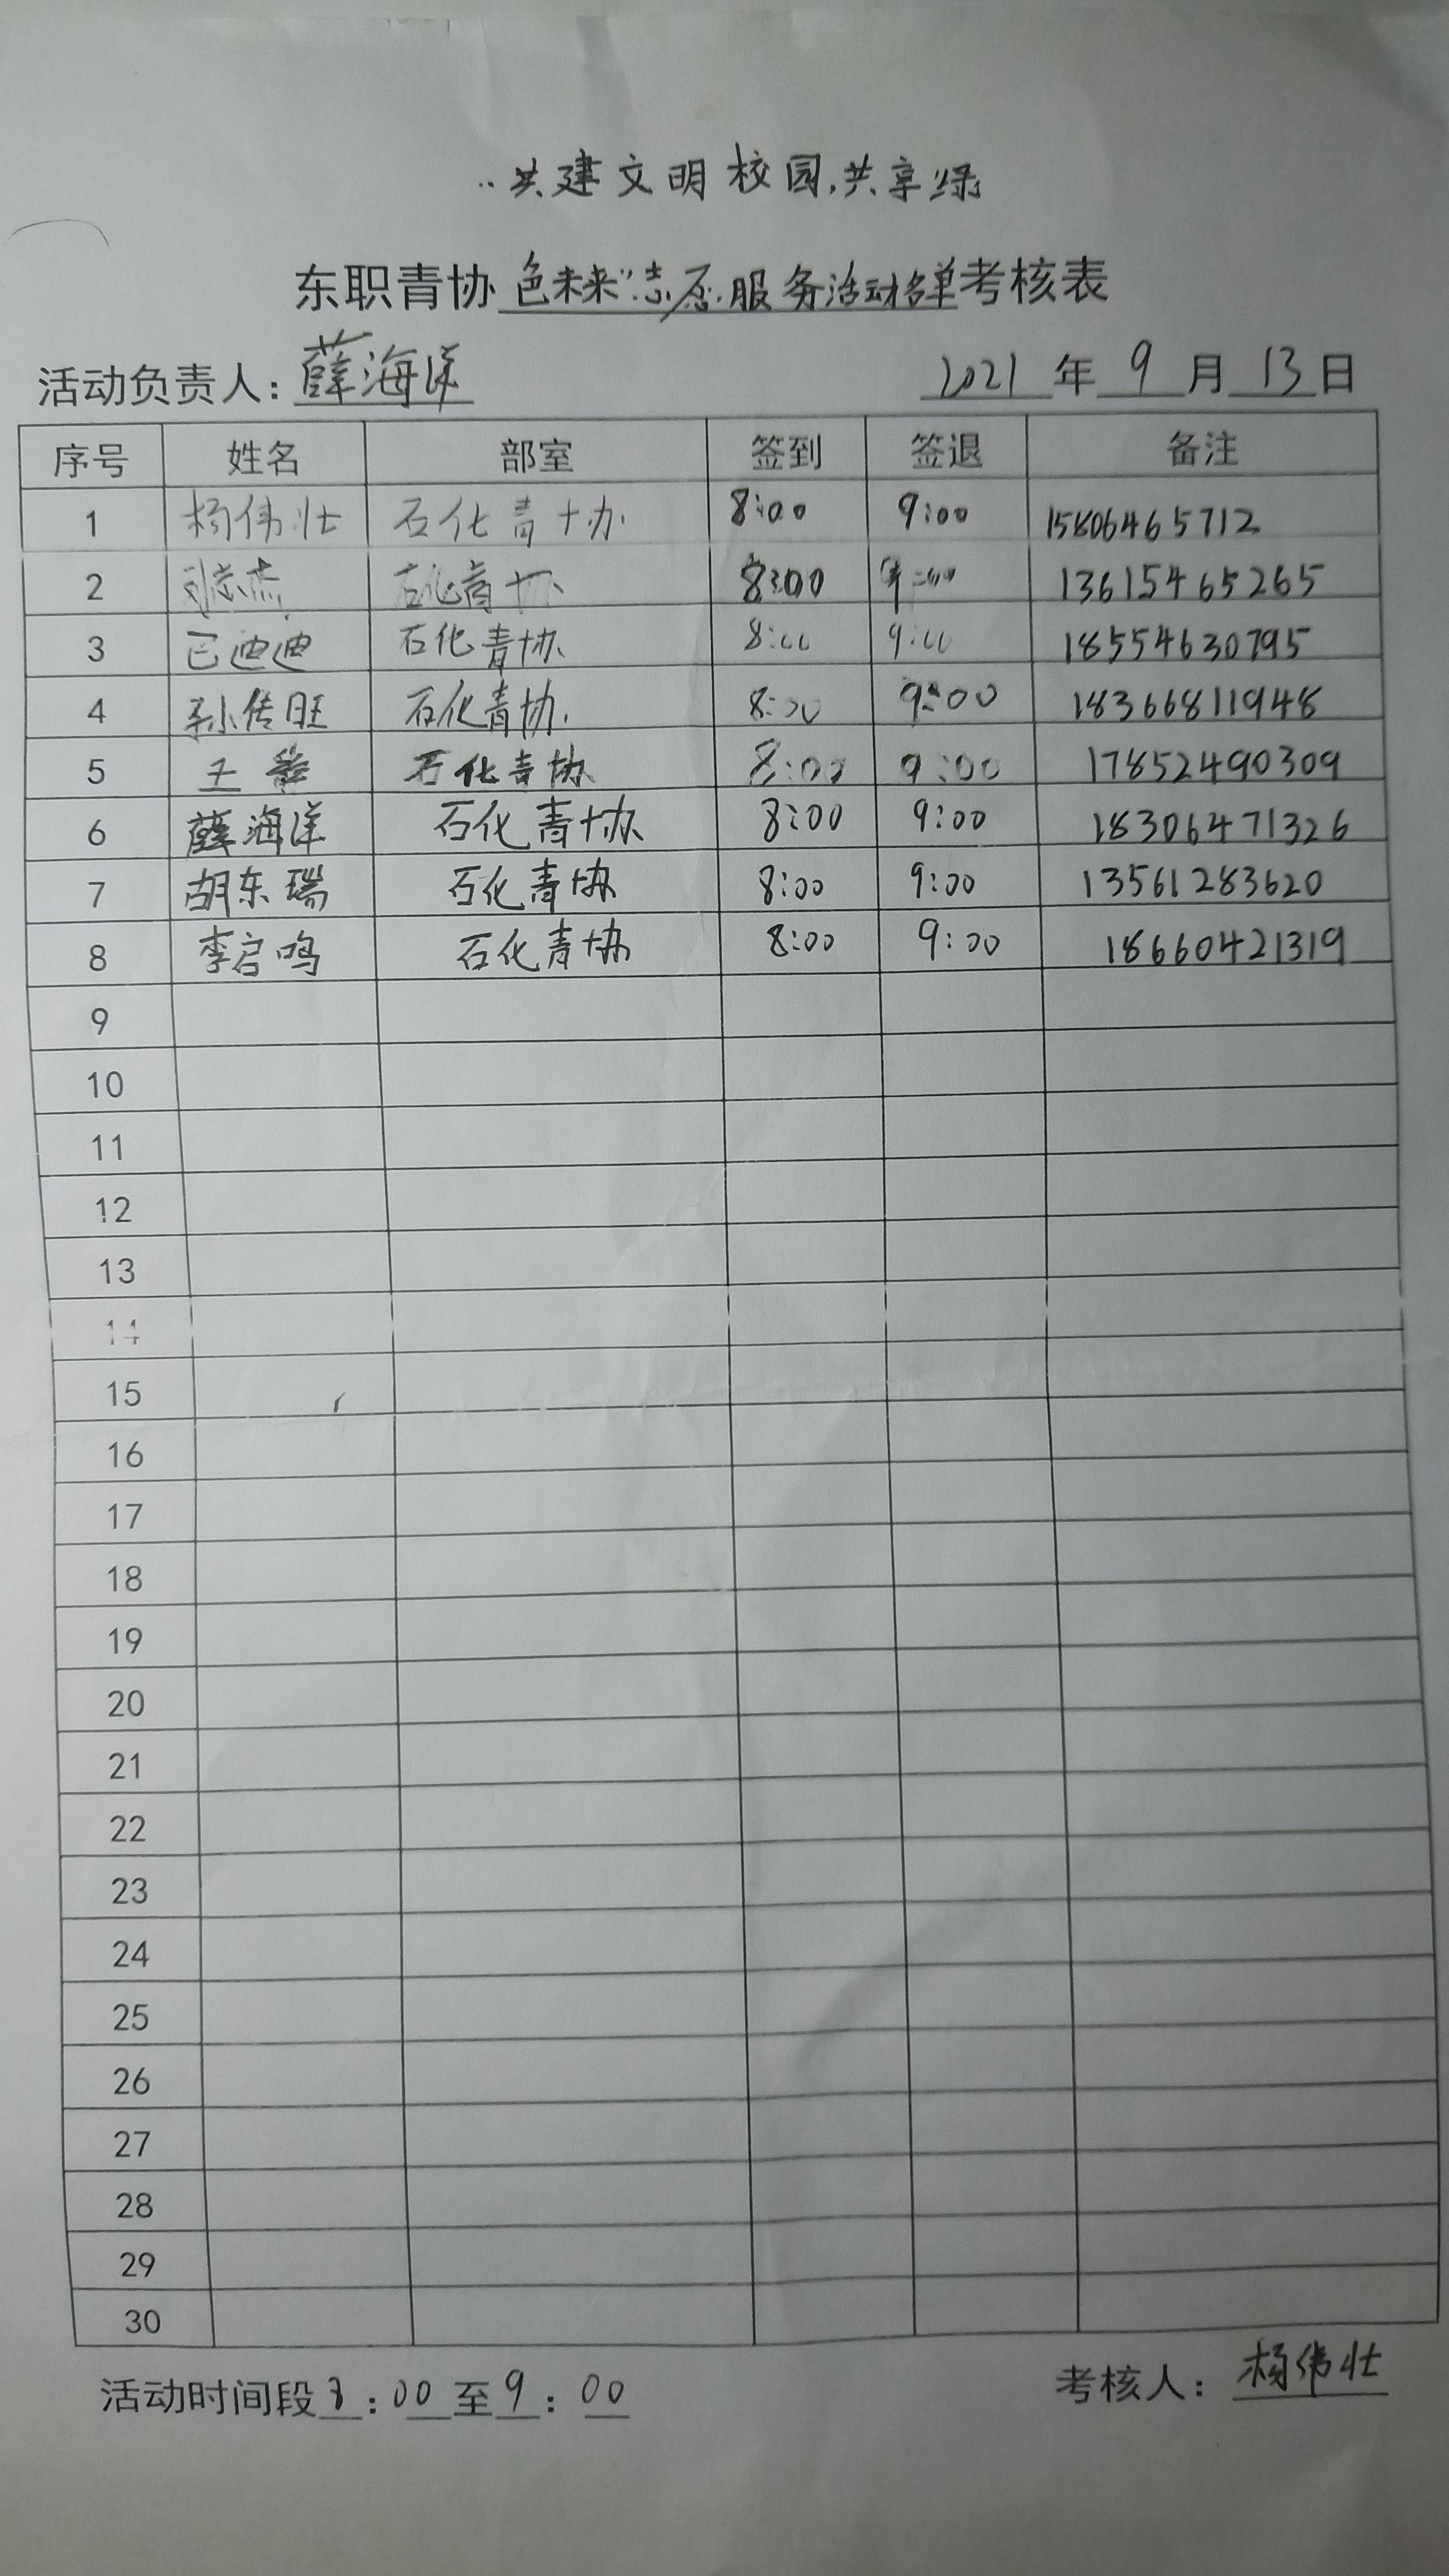 “共建文明校园,共享绿
东职青协 色未来”志愿服务活动名单考核表
活动负责人: 薛海洋 2021 年 9 月 13 日
序号 姓名 部室 签到 签退 备注
1 杨伟壮 石化青协 8:00 9:00 15806465712
2 石化青协 8:00 9:00 13615465265
3 巴迪迪 石化青协 8:00 9:00 18554630795
4 孙传旺 石化青协 8:00 9:00 18366811948
5 王 石化青协 8:00 9:00 17852490309
6 薛海洋 石化青协 8:00 9:00 18306471326
7 胡东瑞 石化青协 8:00 9:00 13561283620
8 李启鸣 石化青协 8:00 9:00 18660421319
9
10
11
12
13
14
15
16
17
18
19
20
21
22
23
24
25
26
27
28
29
30
活动时间段 8:00 至 9:00 考核人: 杨伟壮